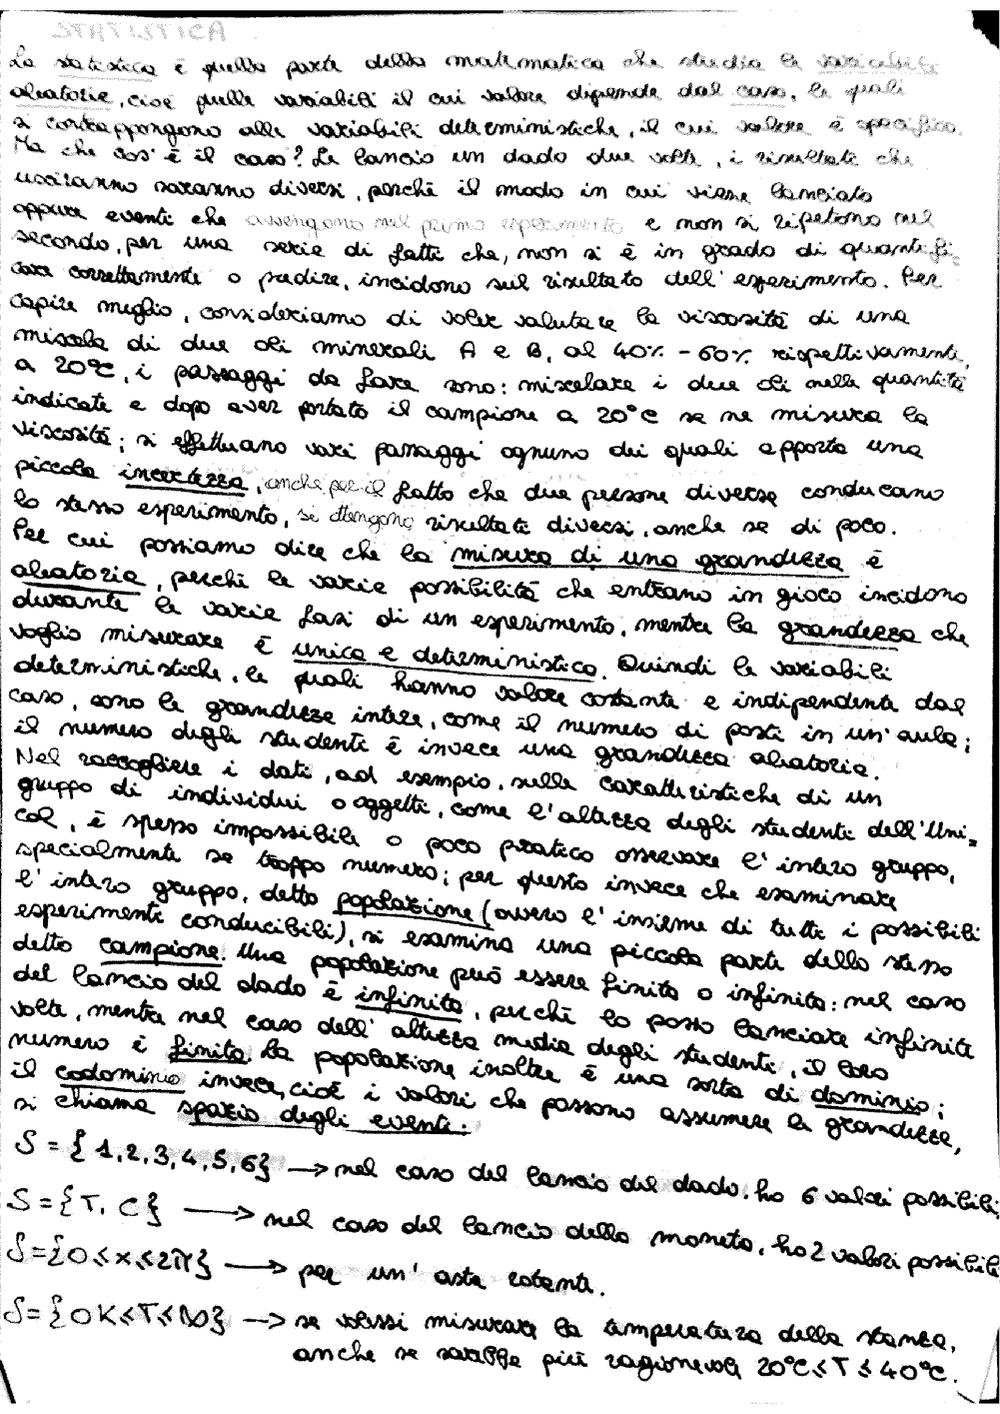 STATISTICA
La statistica è quella parte della matematica che studia le variabili
aleatorie, cioè quelle variabili il cui valore dipende dal caso, le quali
si contrappongono alle variabili deterministiche, il cui valore è specifico.
Ma che cos'è il caso? Se lancio un dado due volte, i risultati che
usciranno saranno diversi, perché il modo in cui viene lanciato
oppure eventi che avvengono nel primo esperimento e non si ripetono nel
secondo, per una serie di fatti che, non si è in grado di quantifi-
care correttamente o predire, incidono sul risultato dell'esperimento. Per
capire meglio, consideriamo di voler valutare la viscosità di una
miscela di due oli minerali A e B, al 40% - 60% rispettivamente,
a 20°C, i passaggi da fare sono: miscelare i due oli nelle quantità
indicate e dopo aver portato il campione a 20°C se ne misura la
viscosità; si effettuano vari passaggi ognuno dei quali apporta una
piccola incertezza, anche per il fatto che due persone diverse conducano
lo stesso esperimento, si ottengono risultati diversi, anche se di poco.
Per cui possiamo dire che la misura di una grandezza è
aleatoria, perché le varie possibilità che entrano in gioco incidono
durante le varie fasi di un esperimento, mentre la grandezza che
voglio misurare è unica e deterministica. Quindi le variabili
deterministiche, le quali hanno valore costante e indipendente dal
caso, sono le grandezze intere, come il numero di posti in un'aula;
il numero degli studenti è invece una grandezza aleatoria.
Nel raccogliere i dati, ad esempio, sulle caratteristiche di un
gruppo di individui o oggetti, come l'altezza degli studenti dell'Uni-
cal, è spesso impossibile o poco pratico osservare l'intero gruppo,
specialmente se troppo numeroso; per questo invece che esaminare
l'intero gruppo, detto popolazione (ovvero l'insieme di tutti i possibili
esperimenti conducibili), si esamina una piccola parte dello stesso
detto campione. Una popolazione può essere finita o infinita: nel caso
del lancio del dado è infinita, perché lo posso lanciare infinite
volte, mentre nel caso dell'altezza media degli studenti, il loro
numero è finito. La popolazione inoltre è una sorta di dominio;
il codominio invece, cioè i valori che possono assumere le grandezze,
si chiama spazio degli eventi:
S = {1,2,3,4,5,6} → nel caso del lancio del dado, ho 6 valori possibili;
S = {T, C} → nel caso del lancio della moneta, ho 2 valori possibili
S = {0 ≤ x ≤ 2π} → per un'asta rotante.
S = {0K ≤ T ≤ ∞} → se volessi misurare la temperatura della stanza,
anche se sarebbe più ragionevole 20°C ≤ T ≤ 40°C.